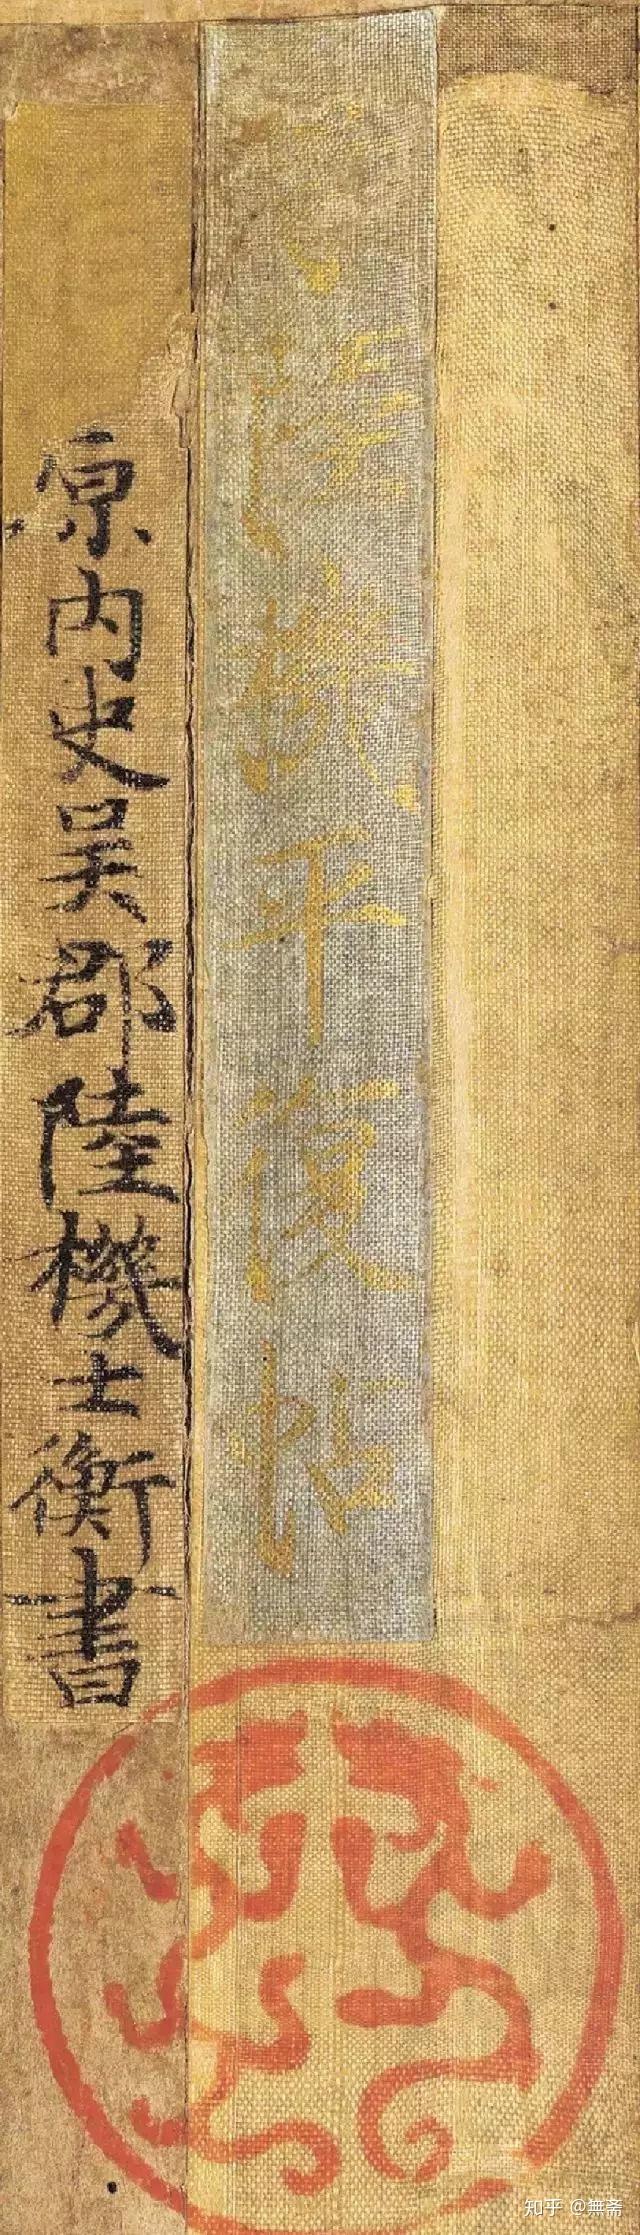 陸機平復帖
原内史吴郡陸機士衡書
知乎 @無斋